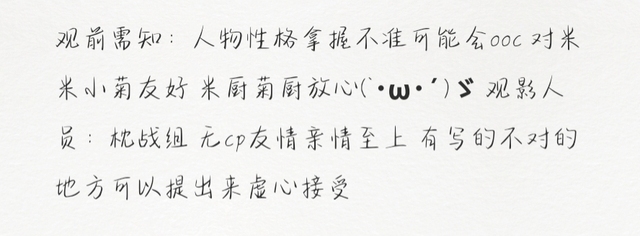 观前需知：人物性格拿握不准可能会ooc 对米
米小菊友好 米厨菊厨放心(`･ω･´)ゞ 观影人
员：枕战组 无cp友情亲情至上 有写的不对的
地方可以提出来虚心接受